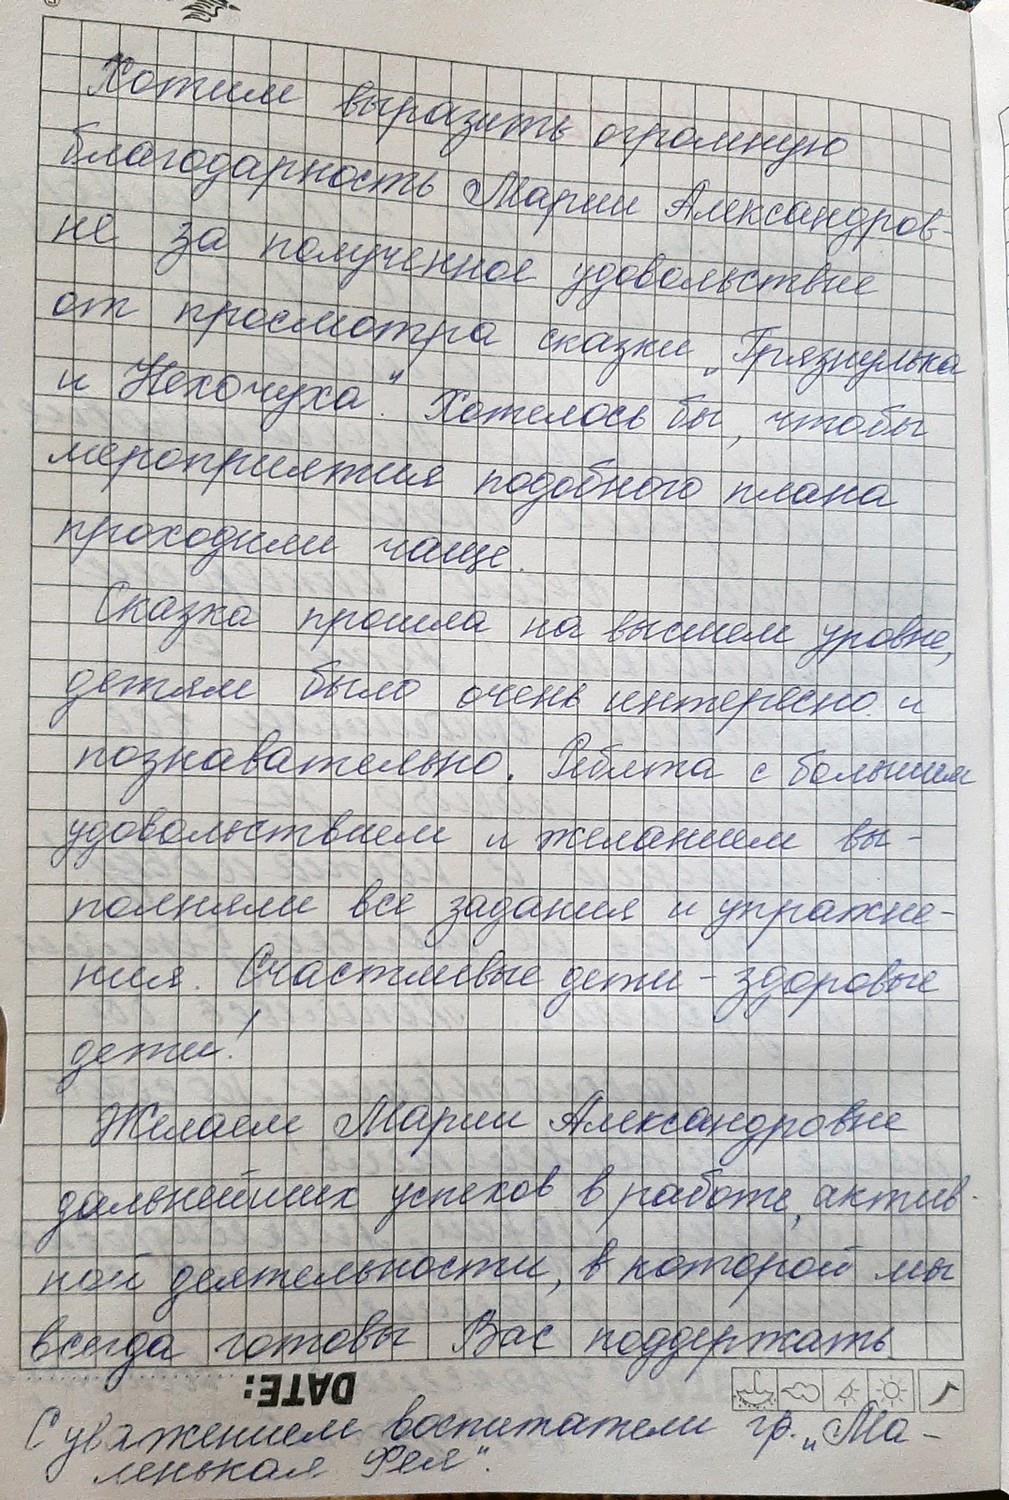 Хотим выразить огромную
благодарность Марии Александров-
не за полученное удовольствие
от просмотра сказки „Грязнулька
и Нехочуха". Хотелось бы, чтобы
мероприятия подобного плана
проходили чаще.
Сказка прошла на высшем уровне,
детям было очень интересно и
познавательно. Ребята с большим
удовольствием и желанием вы-
полняли все задания и упражне-
ния. Счастливые дети - здоровые
дети!
Желаем Марии Александровне
дальнейших успехов в работе, актив-
ной деятельности, в которой мы
всегда готовы Вас поддержать
DATE:
С уважением воспитатели гр. „Ма-
ленькая Фея".